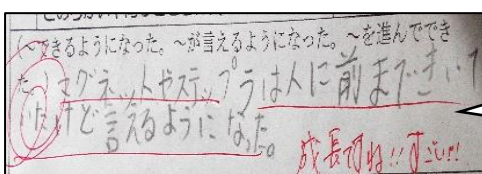 (～できるようになった。～が言えるようになった。～を進んででき
た。)マグネットやステップラは人に前まできいて
いたけど言えるようになった。
成長ですね!!すごい!!!